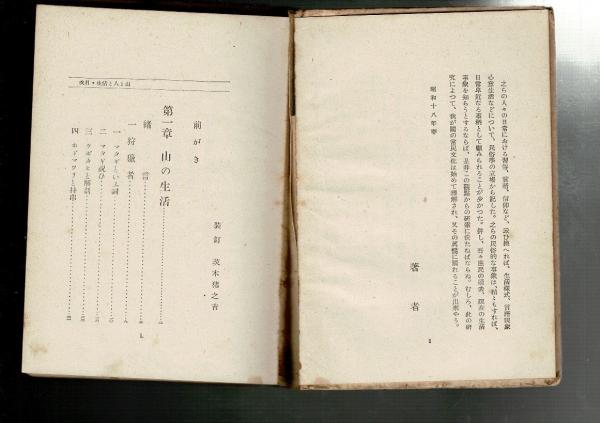 之らの人々の日常における習俗、言語、信仰など、云ひ換へれば、生活樣式、言語現象
心意生活などについて、民俗學の立場から記した。之らの民俗的な事象は、稍ともすれば、
日常卑近なる事柄として顧みられることが少かつた。併し、吾々庶民の過去、現在の生活
事象を知らうとするならば、是非この觀點からの研索に依たねばならぬ。むしろ、此の研
究によつて、我が國の常民文化は始めて理解され、又その眞髓に觸れることが出來やう。
昭和十八年春
著者
2
裝釘 茨木猪之吉
前がき
第一章 山の生活
緖言
一 狩獵者
一 マタギといふ詞
二 マタギ
三
四
山と人と生活・目次
1